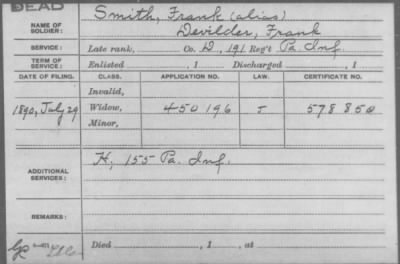 DEAD
NAME OF SOLDIER: Smith, Frank (alias)
Devilder, Frank
SERVICE: Late rank, Co. D, 191 Reg't Pa. Inf.
TERM OF SERVICE: Enlisted , 1 Discharged , 1
DATE OF FILING. CLASS. APPLICATION NO. LAW. CERTIFICATE NO.
Invalid,
1890, July 29 Widow, 450196 J 578850
Minor,
ADDITIONAL SERVICES: H, 155 Pa. Inf.
REMARKS:
Died , 1 , at